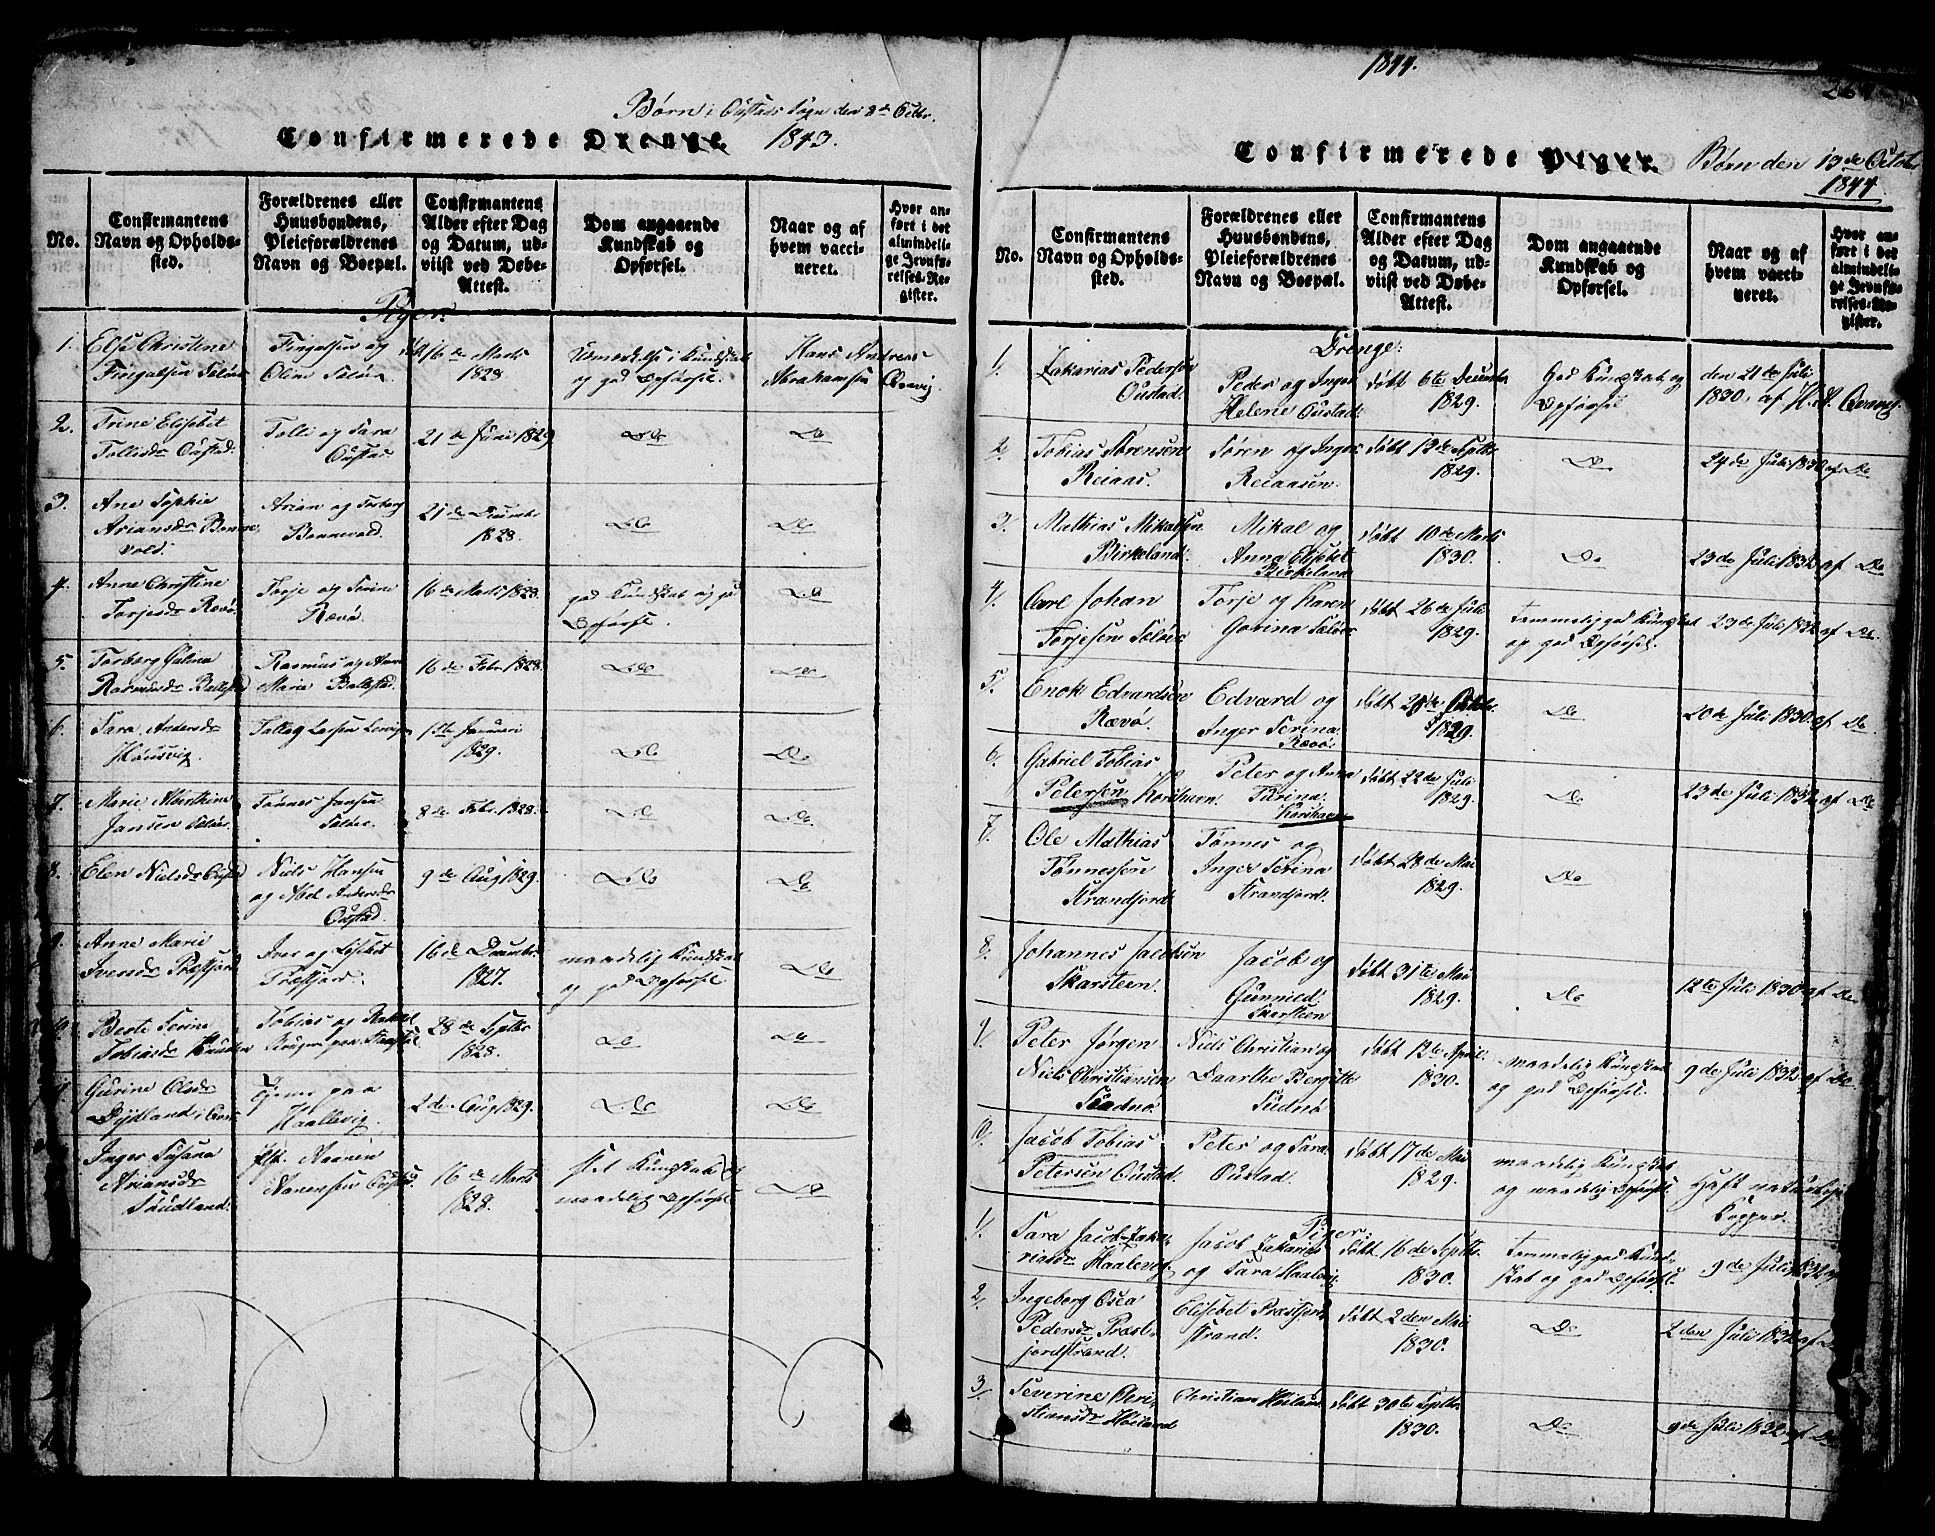 Børn i Oustads Sogn den 8de Octbr.
Confirmerede Drenge. 1843.
No.
Confirmantens
Navn og Opholds-
sted.
Forældrenes eller
Huusbondens,
Pleieforældrenes
Navn og Boepæl.
Confirmantens
Alder efter Dag
og Datum, ud-
viist ved Døbe-
Attest.
Dom angaaende
Kundskab og
Opførsel.
Naar og af
hvem vacci-
neret.
Hvor an-
ført i det
almindeli-
ge Jevnfø-
relses-Re-
gister.
Piger.
1. Else Christine
Fingalsen
Fingalsen og
Oline
16de Marts
1828
Udmerkelse i Kundskab
og god Opførsel.
Hans Andreas
Abrahamsen Qvavig
2. Trine Elisebet
Tollisdr Oustad.
Tolli og Sara
Oustad
21de Juni 1829
Do
Do
3. Ane Sophie
Ariansdr Benne-
vold.
Arian og Torborg
Bennevold.
21de Decembr
1828.
Do
Do
4. Anne Christine
Torjesdr Rævø.
Torje og Serine
Rævø.
16de Marts 1828.
god Kundskab og god
Opførsel.
Do
5. Torborg Galina
Rasmusdr Ballestad
Rasmus og Anne
Marie Ballestad.
16de Febr. 1828.
Do
Do
6. Sara Andersdr
Hønsvig.
Tallag Larsen
1ste Januari
1829.
Do
Do
7. Marie Alberthine
Jansen
Tønnes Jansen
8de Febr. 1828.
Do
Do
8. Elen Nielsdr Oustad
Niels Hansen
og Met Andersdr
Oustad.
9de Aug 1829.
Do
Do
9. Anne Marie
Iversdr Præstfjord
Iver og Lisebet
Præstfjord.
16de Decembr
1827.
maadelig Kundskab
og god Opførsel
Do
10. Berte Serine
Tobiasdr
Tobias og Rakel
28de Septbr
1828.
Do
Do
Gurine Olsdr
Dydland i
Tjener paa
Haallevig.
2de Aug 1829.
Do
Do
Inger Susana
Ariansdr
Søudland.
16de Marts
1828.
slet Kundskab og
maadelig Opførsel
Do
1844.
Confirmerede Piger. Børn den 13de October
1844
No.
Confirmantens
Navn og Opholds-
sted.
Forældrenes eller
Huusbondens,
Pleieforældrenes
Navn og Boepæl.
Confirmantens
Alder efter Dag
og Datum, ud-
viist ved Døbe-
Attest.
Dom angaaende
Kundskab og
Opførsel.
Naar og af
hvem vacci-
neret.
Hvor an-
ført i det
almindeli-
ge Jevnfø-
relses-Re-
gister.
Drenge:
1. Zakarias Pedersen
Oustad.
Peder og Inger
Helene Oustad.
døbt 6te Decembr
1829.
God Kundskab og
Opførsel
den 21de Juli
1830. af H. A. Qvavig.
2. Tobias Sørensen
Reiaas.
Søren og Inger
Reiaasen.
døbt 13de Septbr
1829.
Do
24de Juli 1830 af Do
3. Mathias Mikalsen
Birkeland.
Mikal og
Anna Elisebet
Birkeland
døbt 10de Marts
1830.
Do
23de Juli 1832 af Do
4. Carl Johan
Torjesen
Torje og Karen
Gorina
døbt 26de Juli
1829.
temmelig god Kundskab
og god Opførsel.
23de Juli 1832 af Do.
5. Enok Edvardsen
Rævø.
Edvard og
Inger Serina
Rævø.
døbt
1829.
Do
20de Juli 1830. af Do
6. Gabriel Tobias
Petersen Korshavn
Peter og Anna
Serina
Korshavn
døbt 22de Juli
1829.
Do
23de Juli 1832 af Do
7. Ole Mathias
Tønnessen
Strandfjord.
Tønnes og
Inger Serina
Strandfjord.
døbt 28de Mai
1829.
Do
8. Johannes Jacobsen
Skarsteen.
Jacob og
Gunnild
Skarsteen
døbt 31te Mai
1829.
Do
12te Juli 1830 af Do
9. Peter Jørgen
Niels Christiansen
Niels Christian og
Daarthe Bergitte
døbt 12te April
1830.
maadelig Kundskab
og god Opførsel.
9de Juli 1832 af Do
10. Jacob Tobias
Petersen Oustad.
Peter og Sara
Oustad.
døbt 17de Mai
1829.
maadelig Kundskab
og maadelig Opførsel.
Haft naturlige
Kopper.
Piger.
1. Sara Jacob Zaka-
riasdr Haalevig
Jacob Zakarias
og Sara Haalevig
døbt 16de Septbr.
1830.
temmelig god Kund-
skab og god Opførsel.
9de Juli 1832 af
2. Ingeborg Osea
Pedersdr Præst-
fjordstrand.
Elisebet Præstfjord
strand.
døbt 2den Mai
1830.
Do
2den Juli 1832 af Do
3. Severine Chri-
stiansdr Høiland
Christian Høiland
døbt 30te Septbr
1830.
Do
9de Juli 1832 af Do